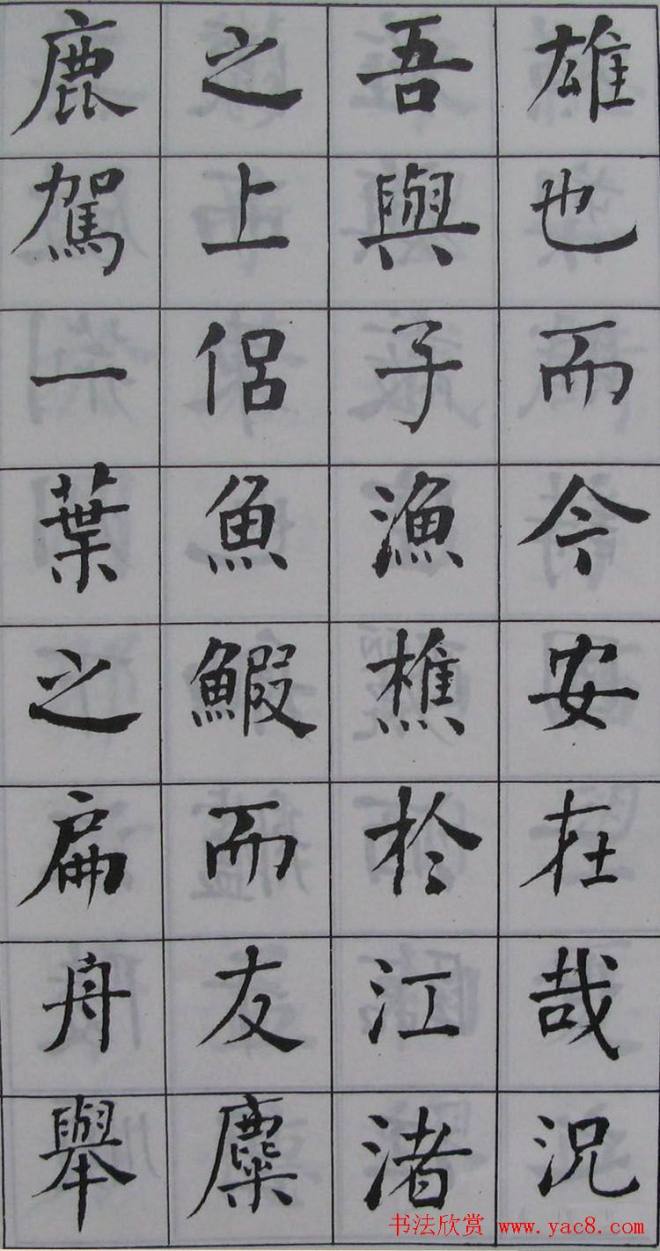 雄也而今安在哉況
吾與子漁樵於江渚
之上侶魚鰕而友麋
鹿駕一葉之扁舟舉
书法欣赏 www.yac8.com